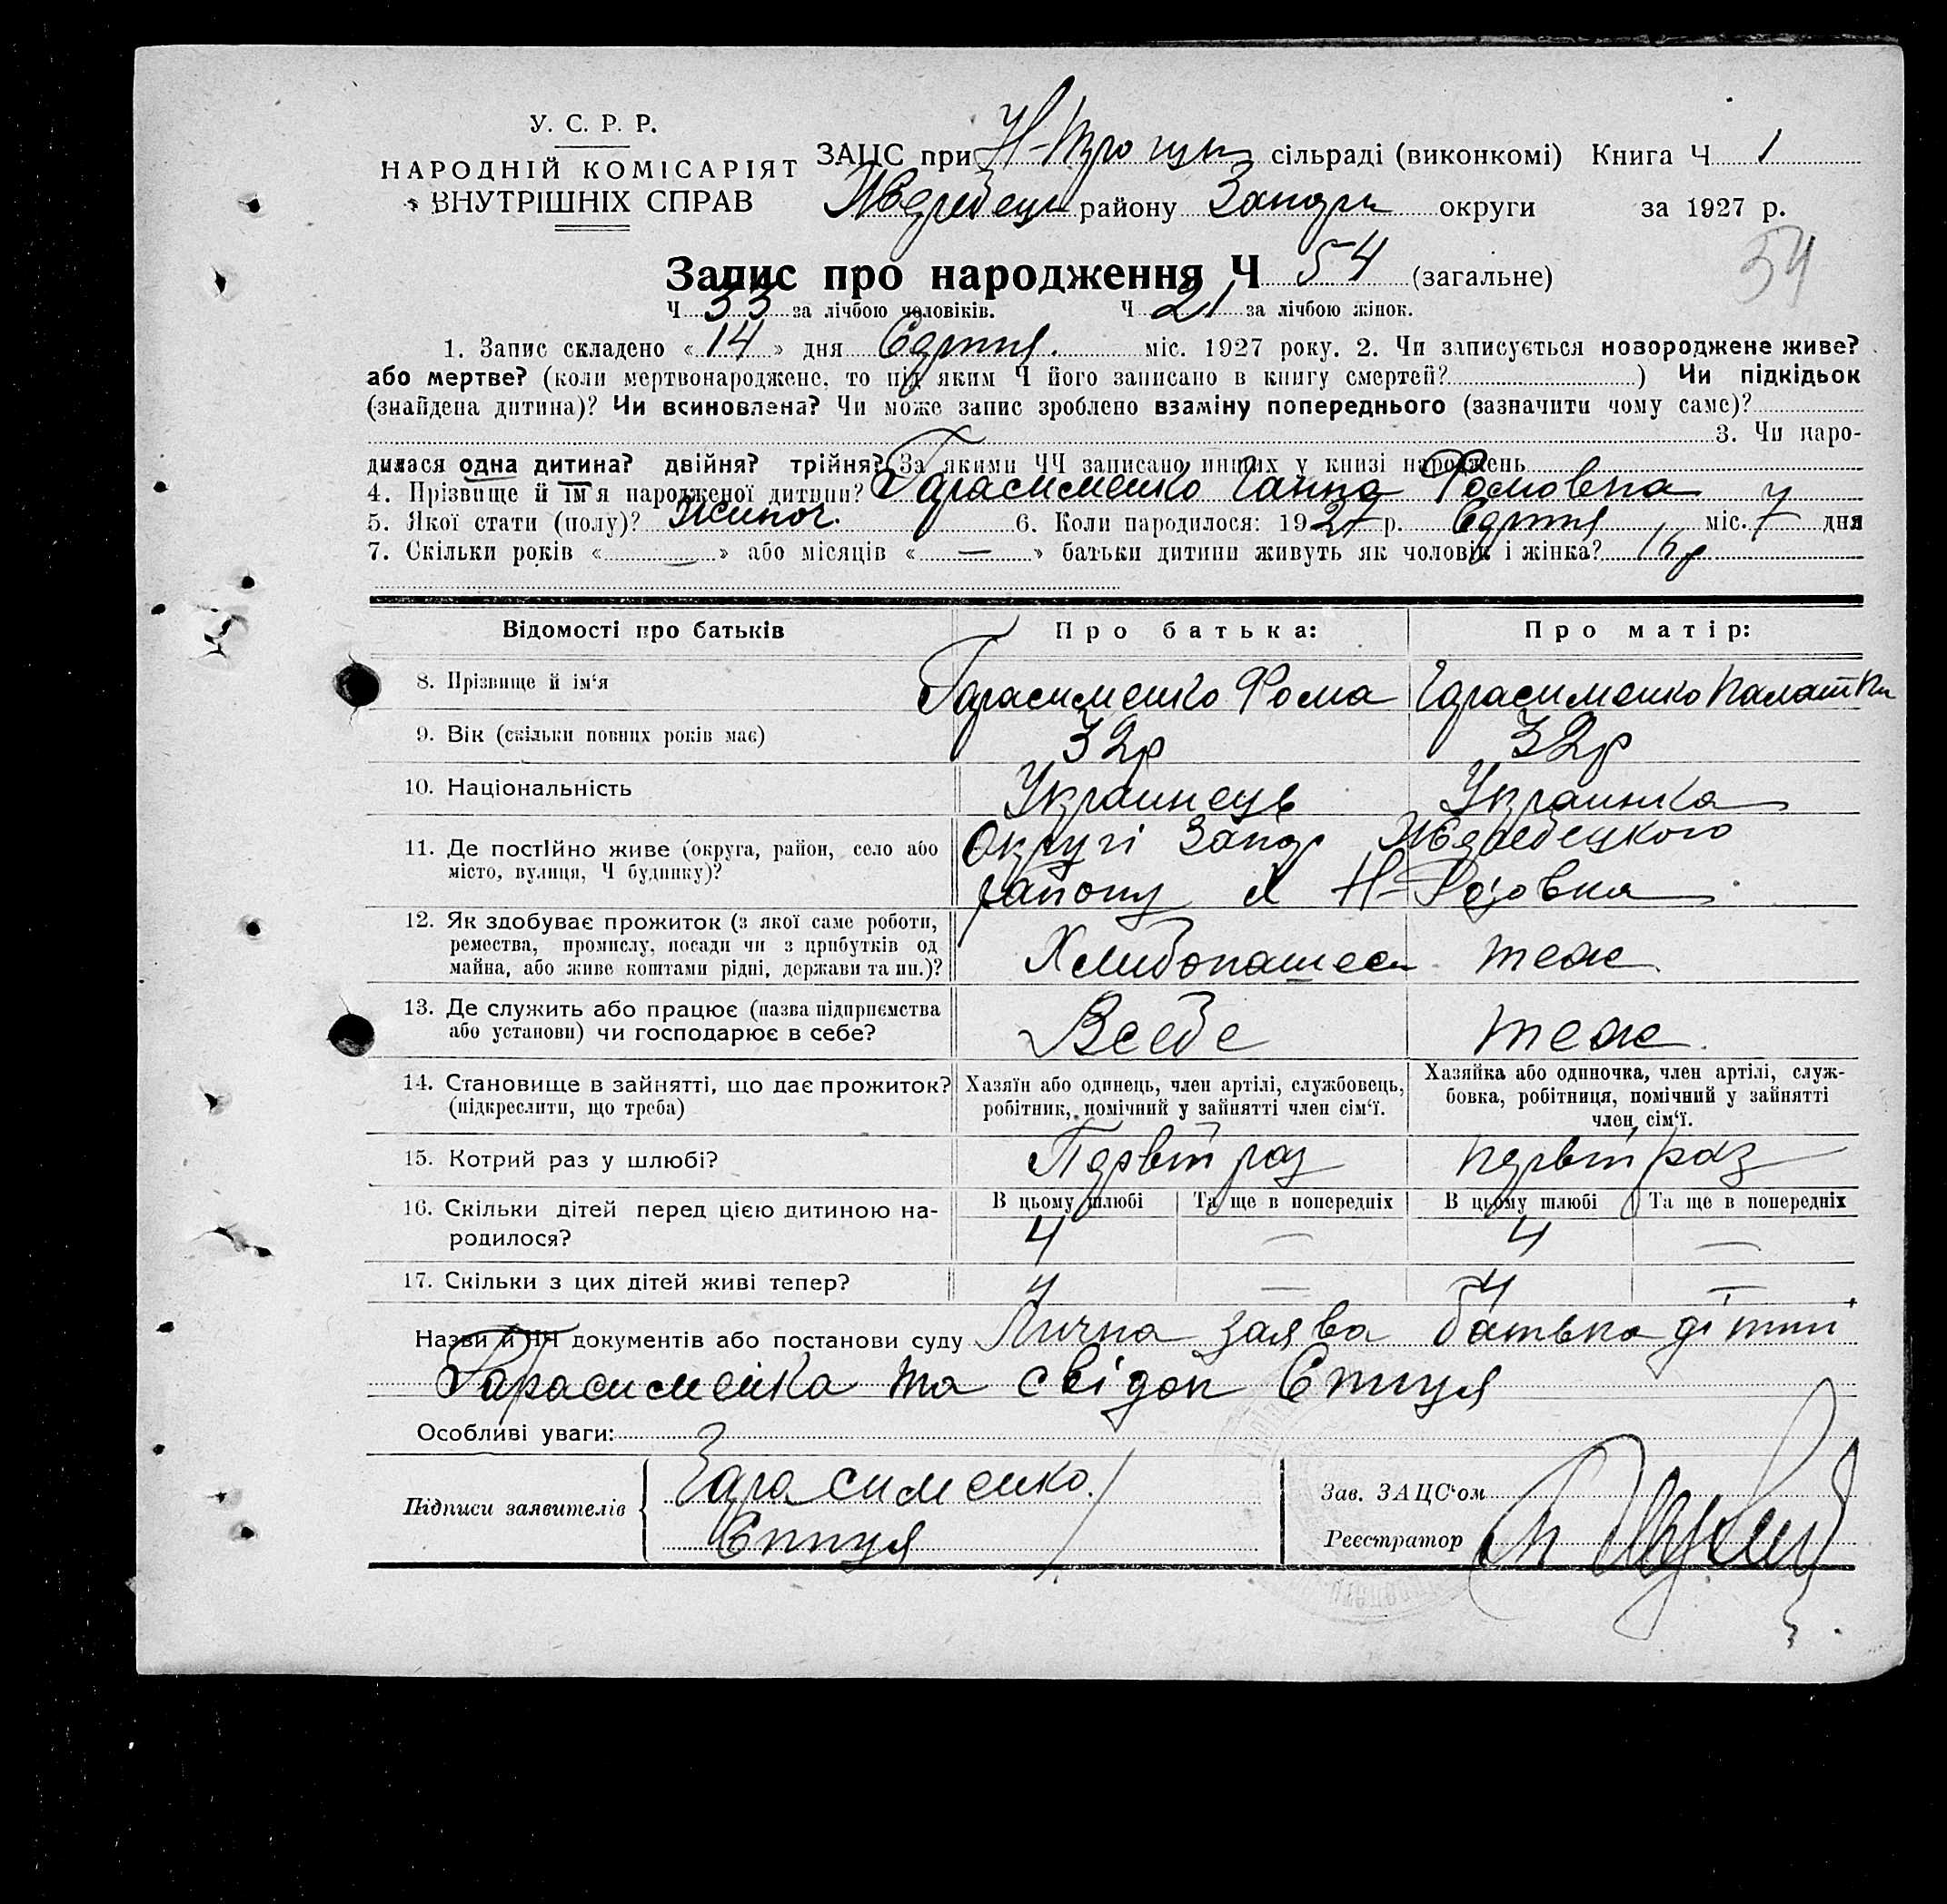 У. С. Р. Р.
НАРОДНІЙ КОМІСАРІЯТ
ВНУТРІШНІХ СПРАВ
ЗАЦС при сільраді (виконкомі) Книга Ч 1
району Запорж округи за 1927 р.
Запис про народження Ч 54 (загальне)
54
Ч 33 за лічбою чоловіків. Ч 21 за лічбою жінок.
1. Запис складено «14» дня міс. 1927 року. 2. Чи записується новороджене живе?
або мертве? (коли мертвонароджене, то під яким Ч його записано в книгу смертей? ) Чи підкідьок
(знайдена дитина)? Чи всиновлена? Чи може запис зроблено взаміну попереднього (зазначити чому саме)?
3. Чи наро-
дилася одна дитина? двійня? трійня? За якими ЧЧ записано инших у книзі народжень
4. Прізвище й ім'я народженої дитини? Гарасименко Ганна Фомовна
5. Якої стати (полу)? Жиноч. 6. Коли народилося: 1927 р. міс. 7 дня
7. Скільки років « — » або місяців « — » батьки дитини живуть як чоловік і жінка? 16 р
Відомості про батьків
Про батька:
Про матір:
8. Прізвище й ім'я Гарасименко Фома Гарасименко
9. Вік (скільки повних років має) 32р 32р
10. Національність Украинець Украинка
11. Де постійно живе (округа, район, село або
місто, вулиця, Ч будинку)?
Округі Запор
району х Н-Розовка
12. Як здобуває прожиток (з якої саме роботи,
ремества, промислу, посади чи з прибутків од
майна, або живе коштами рідні, держави та ин.)?
теж
13. Де служить або працює (назва підприємства
або установи) чи господарює в себе?
Всебе теж
14. Становище в зайнятті, що дає прожиток?
(підкреслити, що треба)
Хазяїн або одинець, член артілі, службовець,
робітник, помічний у зайнятті член сім'ї.
Хазяйка або одиночка, член артілі, служ-
бовка, робітниця, помічний у зайнятті
член сім'ї.
15. Котрий раз у шлюбі? раз раз
16. Скільки дітей перед цією дитиною на-
родилося?
В цьому шлюбі Та ще в попередніх В цьому шлюбі Та ще в попередніх
4 — 4 —
17. Скільки з цих дітей живі тепер? 4 — 4 —
Назви й ЧЧ документів або постанови суду Лична заява батька дітини
Гарасименка та свідок
Особливі уваги:
Підписи заявителів
Гарасименко.
Зав. ЗАЦС'ом
Реєстратор